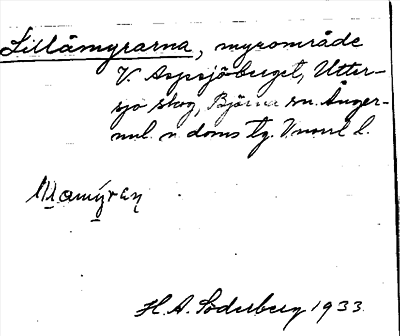 Lillåmyrarna, myrområde
V. Aspsjöberget, Utter-
sjö skog, Björna sn. Ånger-
ml. n doms tg. Vnorrl l.
H. A. Söderberg 1933.